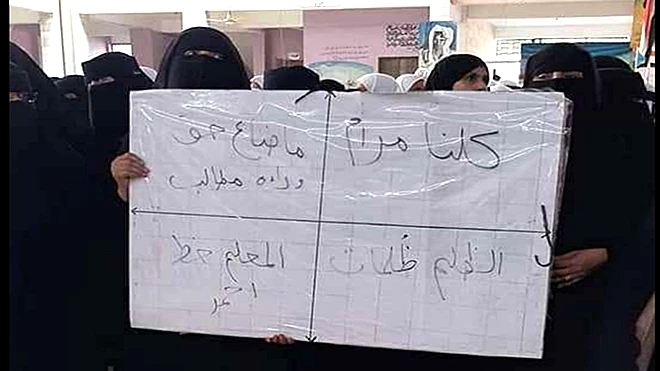 كلنا مرام
ما ضاع حق
وراه مطالب
الظلم ظلمات
المعلم خط
احمر